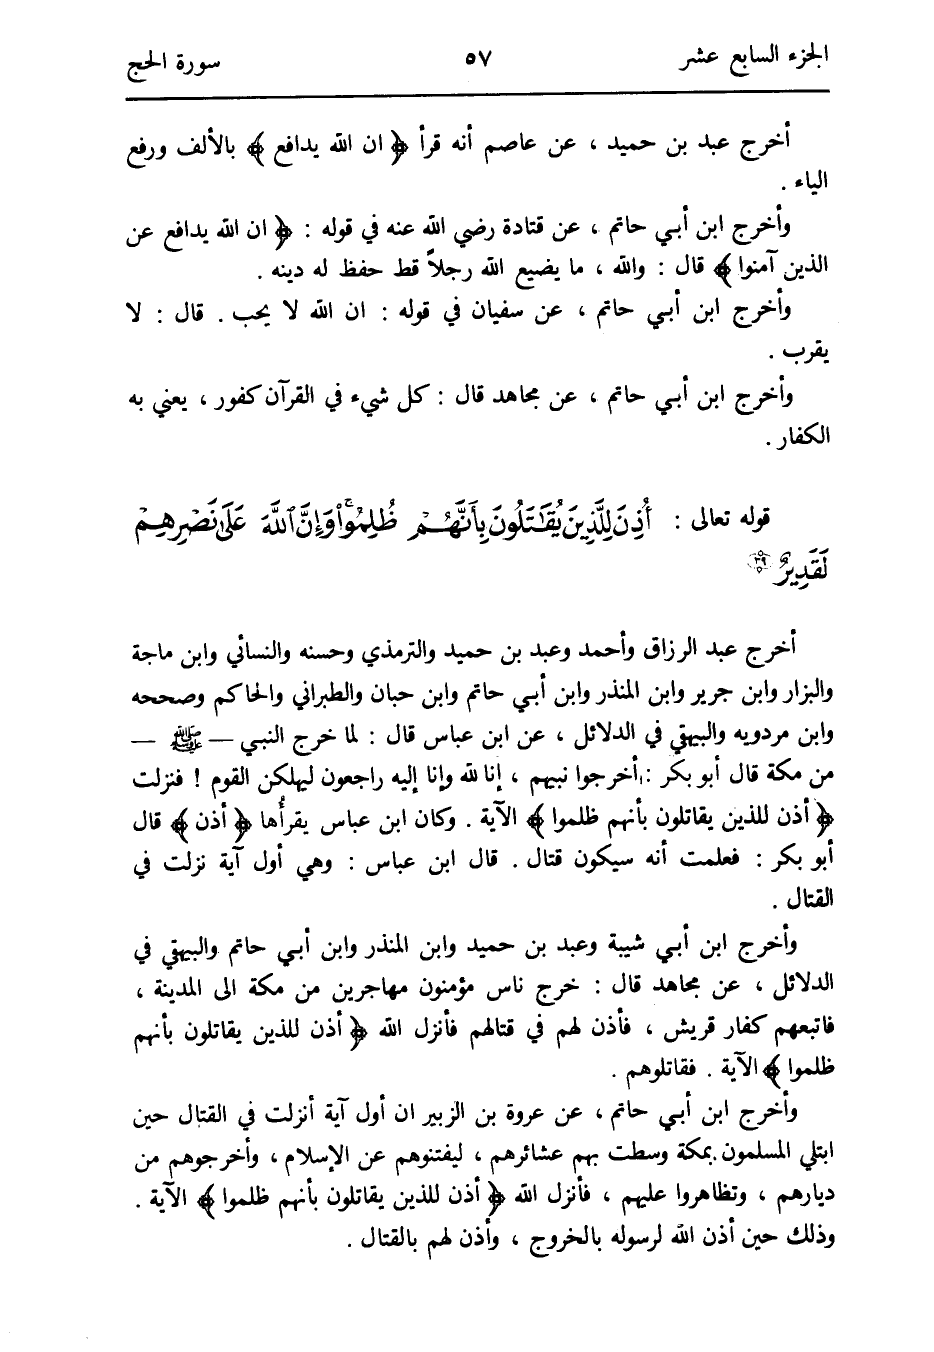 الجزء السابع عشر ٥٧ سورة الحج
أخرج عبد بن حميد ، عن عاصم أنه قرأ ﴿ ان الله يدافع ﴾ بالألف ورفع
الياء .
وأخرج ابن أبي حاتم ، عن قتادة رضي الله عنه في قوله : ﴿ ان الله يدافع عن
الذين آمنوا ﴾ قال : والله ، ما يضيع الله رجلاً قط حفظ له دينه .
وأخرج ابن أبي حاتم ، عن سفيان في قوله : ان الله لا يحب . قال : لا
يقرب .
وأخرج ابن أبي حاتم ، عن مجاهد قال : كل شيء في القرآن كفور ، يعني به
الكفار .
قوله تعالى : أُذِنَ لِلَّذِينَ يُقَٰتَلُونَ بِأَنَّهُمْ ظُلِمُوا۟ ۚ وَإِنَّ ٱللَّهَ عَلَىٰ نَصْرِهِمْ
لَقَدِيرٌ ٣٩
أخرج عبد الرزاق وأحمد وعبد بن حميد والترمذي وحسنه والنسائي وابن ماجة
والبزار وابن جرير وابن المنذر وابن أبي حاتم وابن حبان والطبراني والحاكم وصححه
وابن مردويه والبيهقي في الدلائل ، عن ابن عباس قال : لما خرج النبي – ﷺ –
من مكة قال أبو بكر : أخرجوا نبيهم ، إنا لله وإنا إليه راجعون ليهلكن القوم ! فنزلت
﴿ أذن للذين يقاتلون بأنهم ظلموا ﴾ الآية . وكان ابن عباس يقرأُها ﴿ أذن ﴾ قال
أبو بكر : فعلمت أنه سيكون قتال . قال ابن عباس : وهي أول آية نزلت في
القتال .
وأخرج ابن أبي شيبة وعبد بن حميد وابن المنذر وابن أبي حاتم والبيهقي في
الدلائل ، عن مجاهد قال : خرج ناس مؤمنون مهاجرين من مكة الى المدينة ،
فاتبعهم كفار قريش ، فأذن لهم في قتالهم فأنزل الله ﴿ أذن للذين يقاتلون بأنهم
ظلموا ﴾ الآية . فقاتلوهم .
وأخرج ابن أبي حاتم ، عن عروة بن الزبير ان أول آية أنزلت في القتال حين
ابتلي المسلمون بمكة وسطت بهم عشائرهم ، ليفتنوهم عن الإسلام ، وأخرجوهم من
ديارهم ، وتظاهروا عليهم ، فأنزل الله ﴿ أذن للذين يقاتلون بأنهم ظلموا ﴾ الآية .
وذلك حين أذن الله لرسوله بالخروج ، وأذن لهم بالقتال .